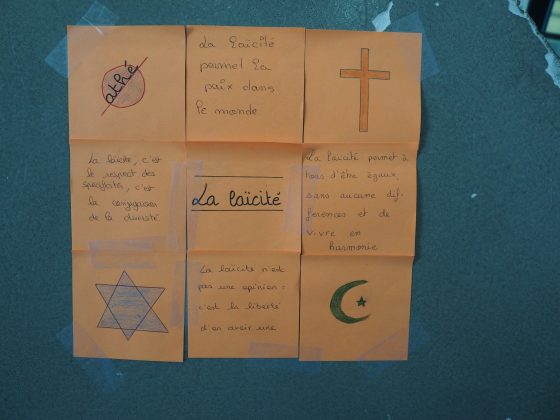 athé
La laïcité
permet la
paix dans
le monde
La laïcité, c'est
le respect des
specificités, c'est
la conjugaison
de la diversité
La laïcité
La laïcité permet à
tous d'être égaux,
sans aucune dif-
férences et de
vivre en
harmonie
La laïcité n'est
pas une opinion :
c'est la liberté
d'en avoir une